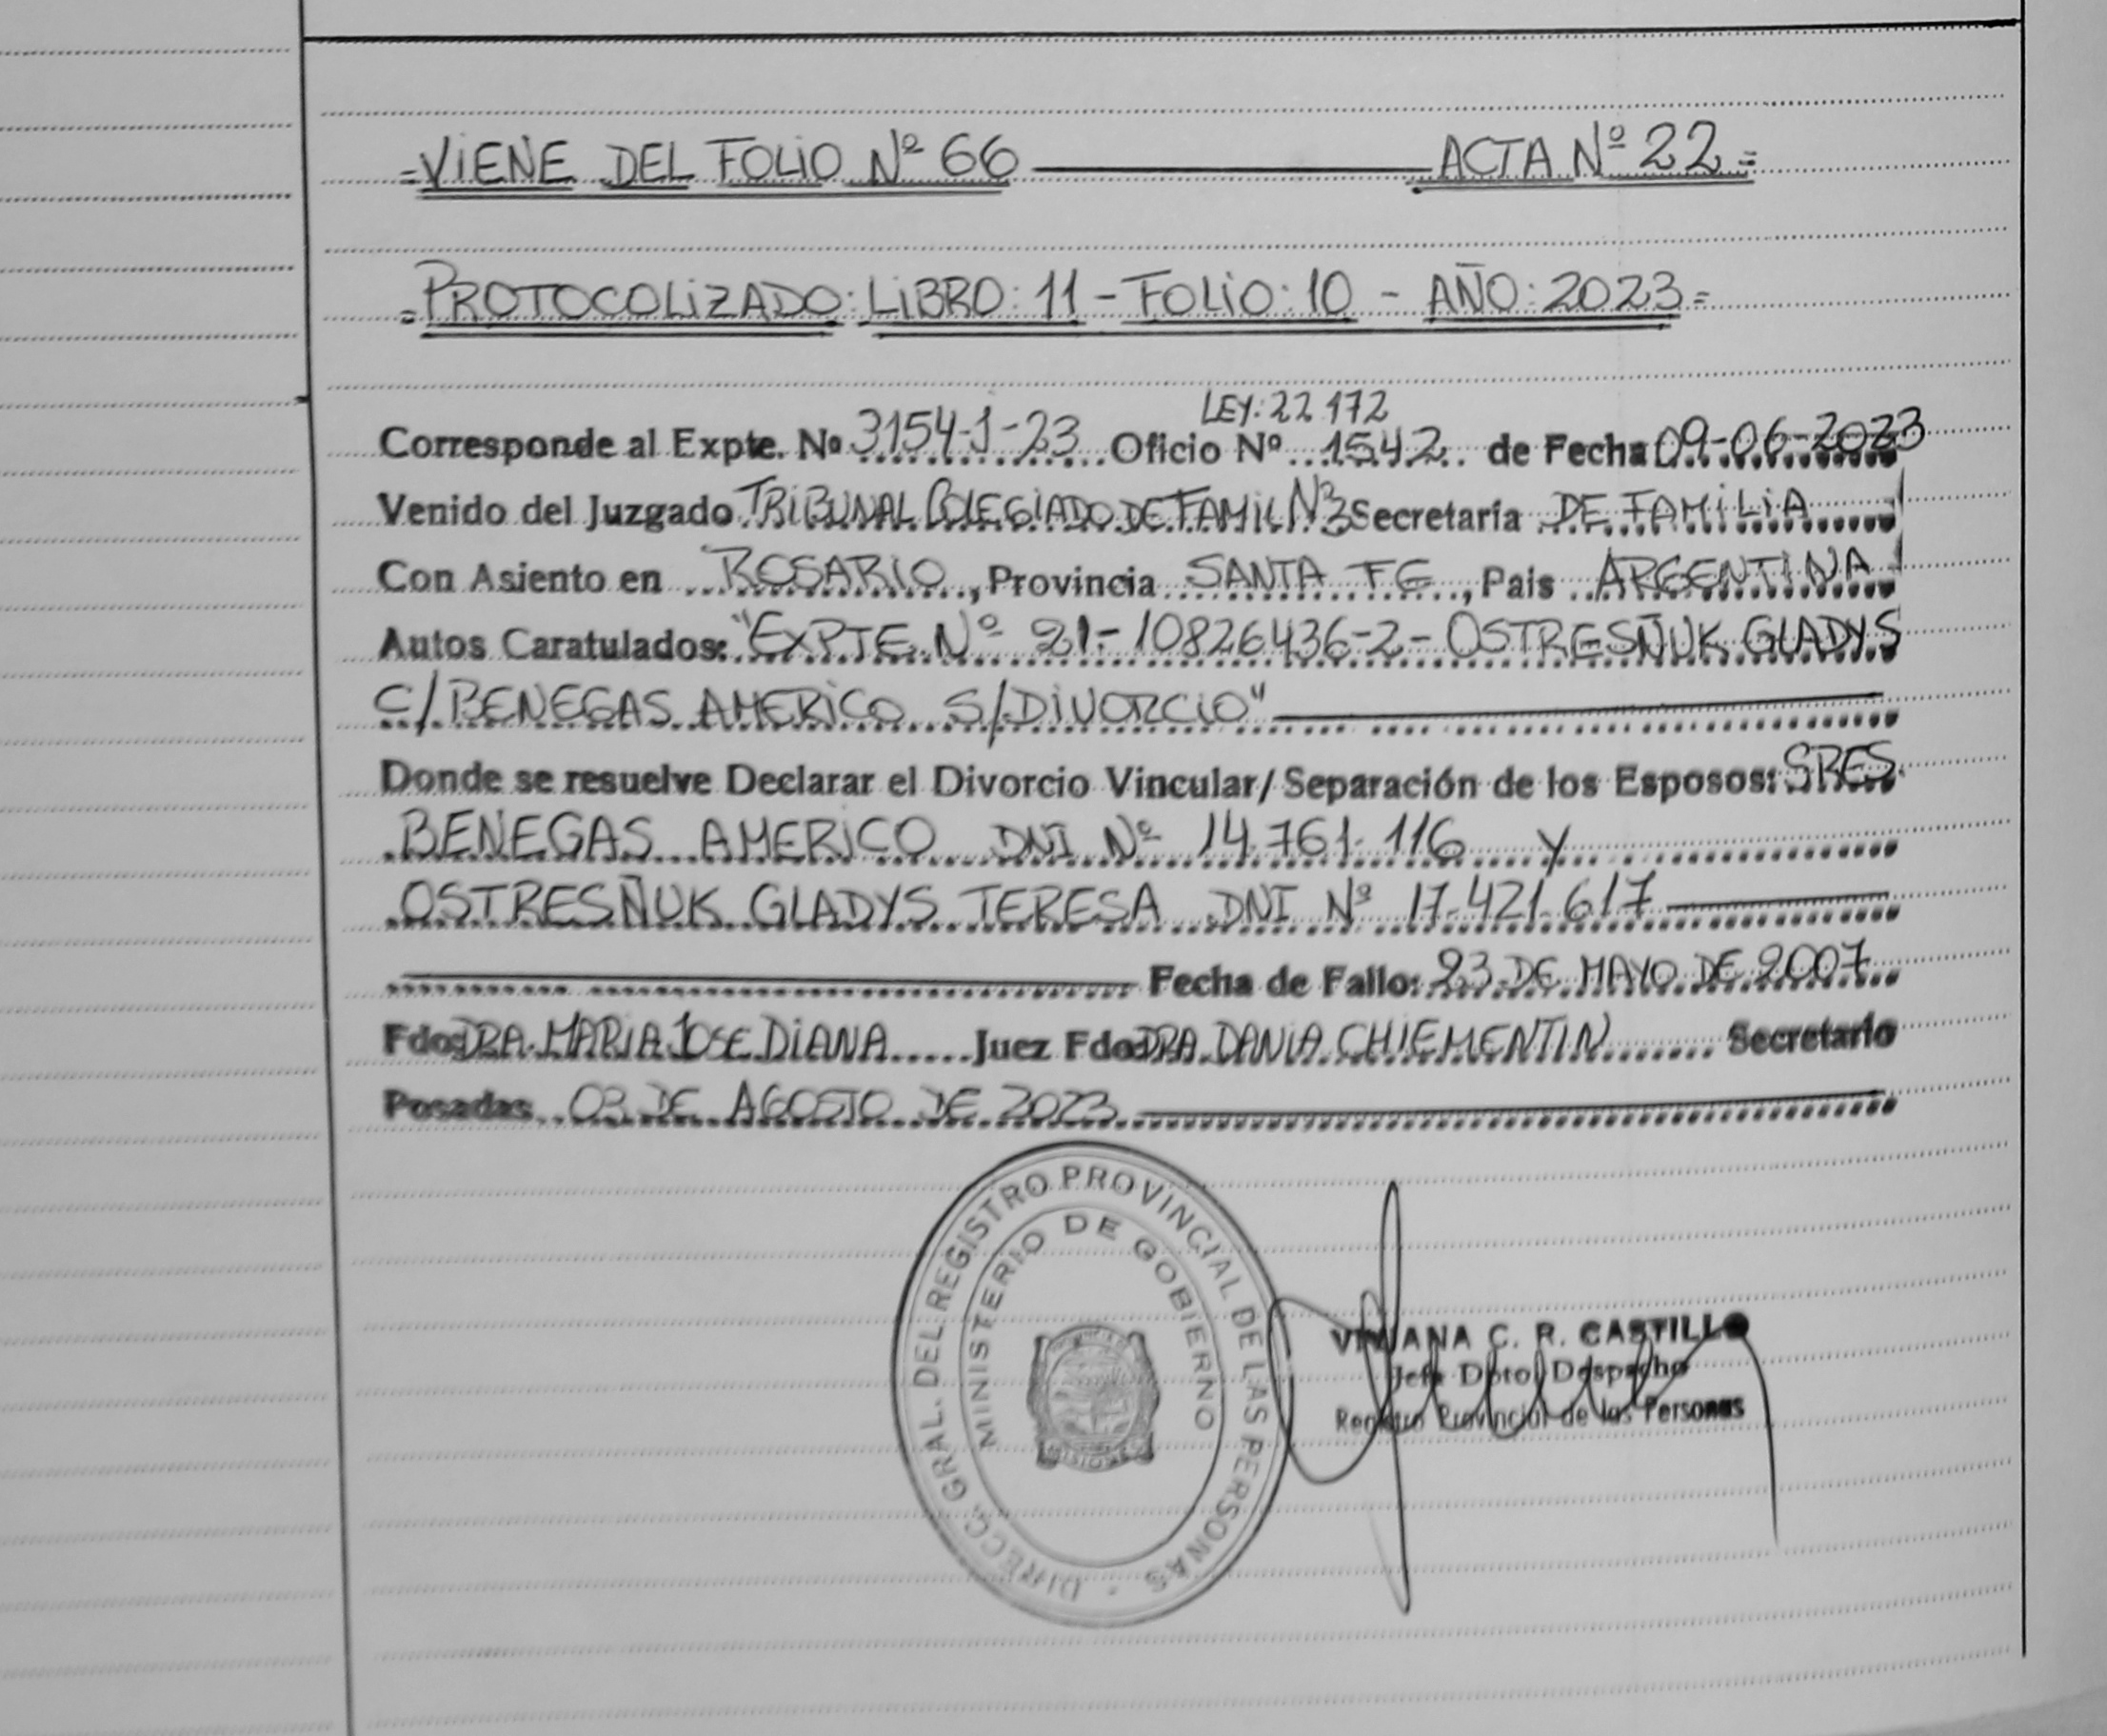 =VIENE DEL FOLIO Nº 66 ACTA Nº 22=
=PROTOCOLIZADO: LIBRO: 11 - FOLIO: 10 - AÑO: 2023=
LEY: 22 172
Corresponde al Expte. Nº 3154-J-23 Oficio Nº 1542 de Fecha 09-06-2023
Venido del Juzgado TRIBUNAL COLEGIADO DE FAMIL Nº3 Secretaría DE FAMILIA
Con Asiento en ROSARIO, Provincia SANTA FE, Pais ARGENTINA
Autos Caratulados: "EXPTE Nº 21-10826436-2- OSTRESÑUK GLADYS
C/ BENEGAS AMERICO S/DIVORCIO"
Donde se resuelve Declarar el Divorcio Vincular/Separación de los Esposos: SRES.
BENEGAS AMERICO DNI Nº 14.761.116 y
OSTRESÑUK GLADYS TERESA DNI Nº 17.421.617
Fecha de Fallo: 23 DE MAYO DE 2007
Fdo: DRA. MARIA JOSE DIANA Juez Fdo: DRA DANIA CHIEMENTIN Secretario
Posadas 03 DE AGOSTO DE 2023
DIRECC. GRAL. DEL REGISTRO PROVINCIAL DE LAS PERSONAS
MINISTERIO DE GOBIERNO
MISIONES
VIVIANA C. R. CASTILLO
Jefa Dpto. Despacho
Registro Provincial de las Personas